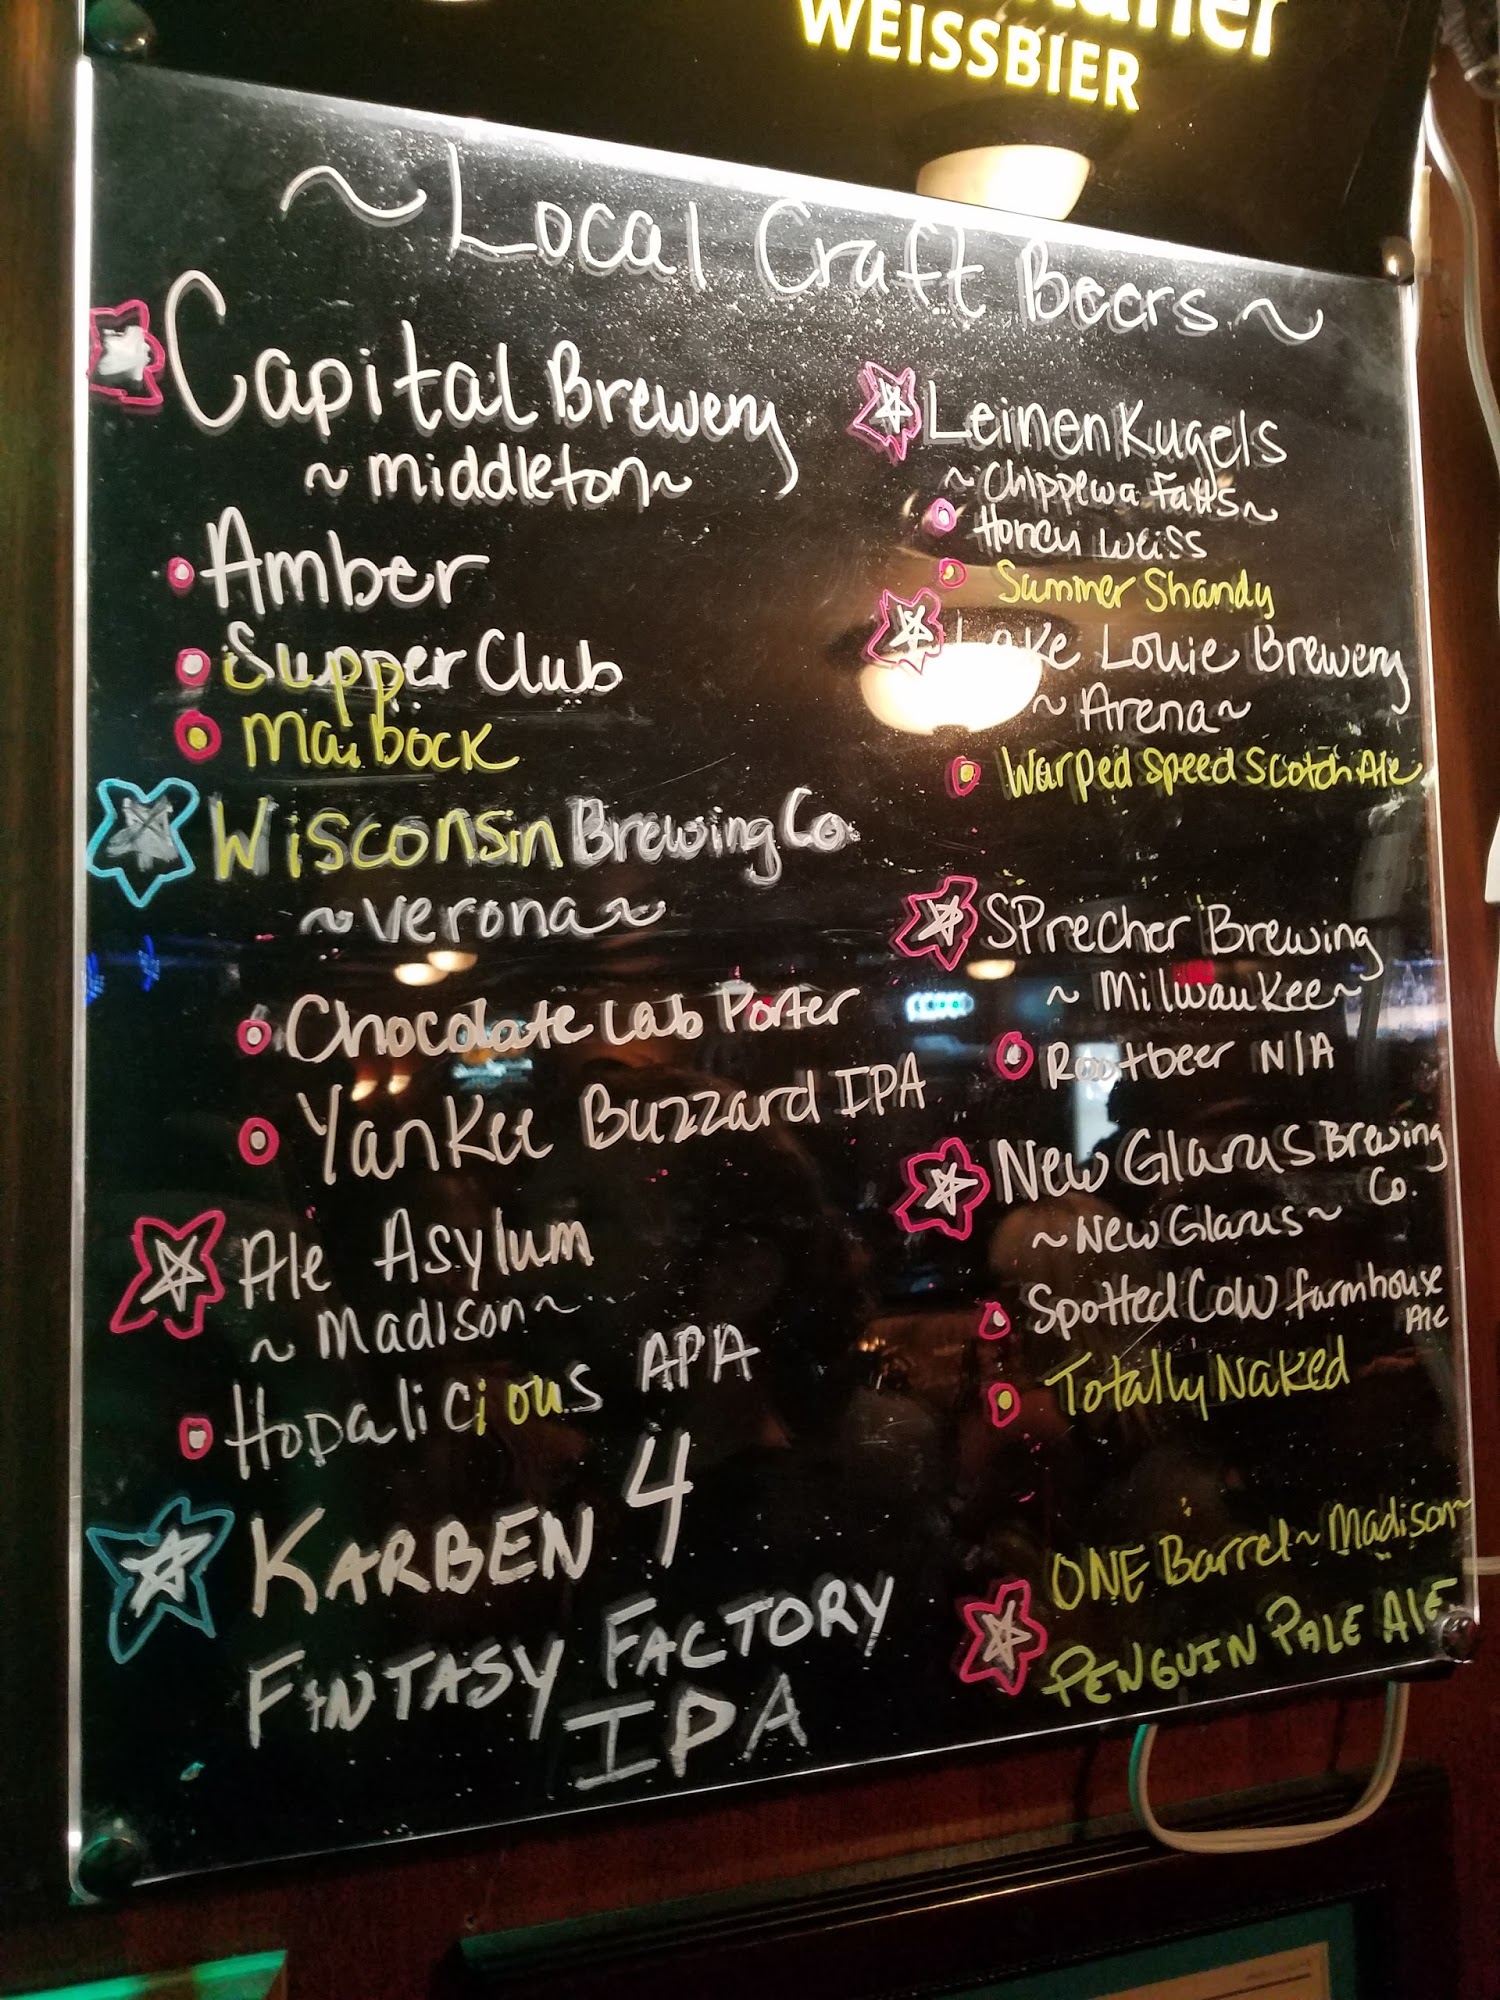 WEISSBIER
~Local Craft Beers~
Capital Brewery
~middleton~
Amber
Supper Club
Maibock
Wisconsin Brewing Co.
~Verona~
Chocolate Lab Porter
Yankee Buzzard IPA
Ale Asylum
~Madison~
Hopalicious APA
KARBEN 4
FANTASY FACTORY
IPA
Leinenkugels
~Chippewa Falls~
Honey Weiss
Summer Shandy
Lake Louie Brewery
~Arena~
Warped Speed Scotch Ale
Sprecher Brewing
~Milwaukee~
Rootbeer N/A
New Glarus Brewing
Co.
~New Glarus~
Spotted Cow farmhouse
Ale
Totally Naked
ONE Barrel~Madison~
PENGUIN PALE ALE